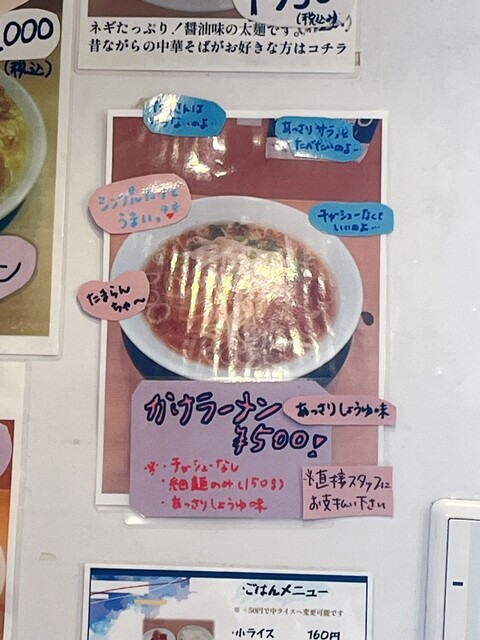 (税込)
ネギたっぷり!醤油味の太麺です。
昔ながらの中華そばがお好きな方はコチラ
,000
(税込)
あっさりサラッと
たべたいのよー
シンプルだけど
うまいっ
チャシューなくて
いいのよ…
たまらん
ちゃ〜
かけラーメン
¥500!
あっさりしょうゆ味
※・チャシューなし
・細麺のみ(150g)
・あっさりしょうゆ味
※直接スタッフに
お支払い下さい
ン
・ごはんメニュー
※+50円で中ライスへ変更可能です
・小ライス 160円